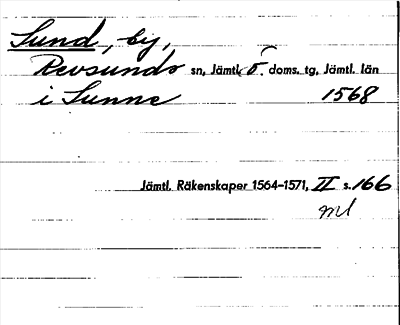 Sund, by,
Revsunds sn, Jämtl. ö. doms. tg, Jämtl. län
i Sunne 1568
Jämtl. Räkenskaper 1564-1571, II s.166
ml